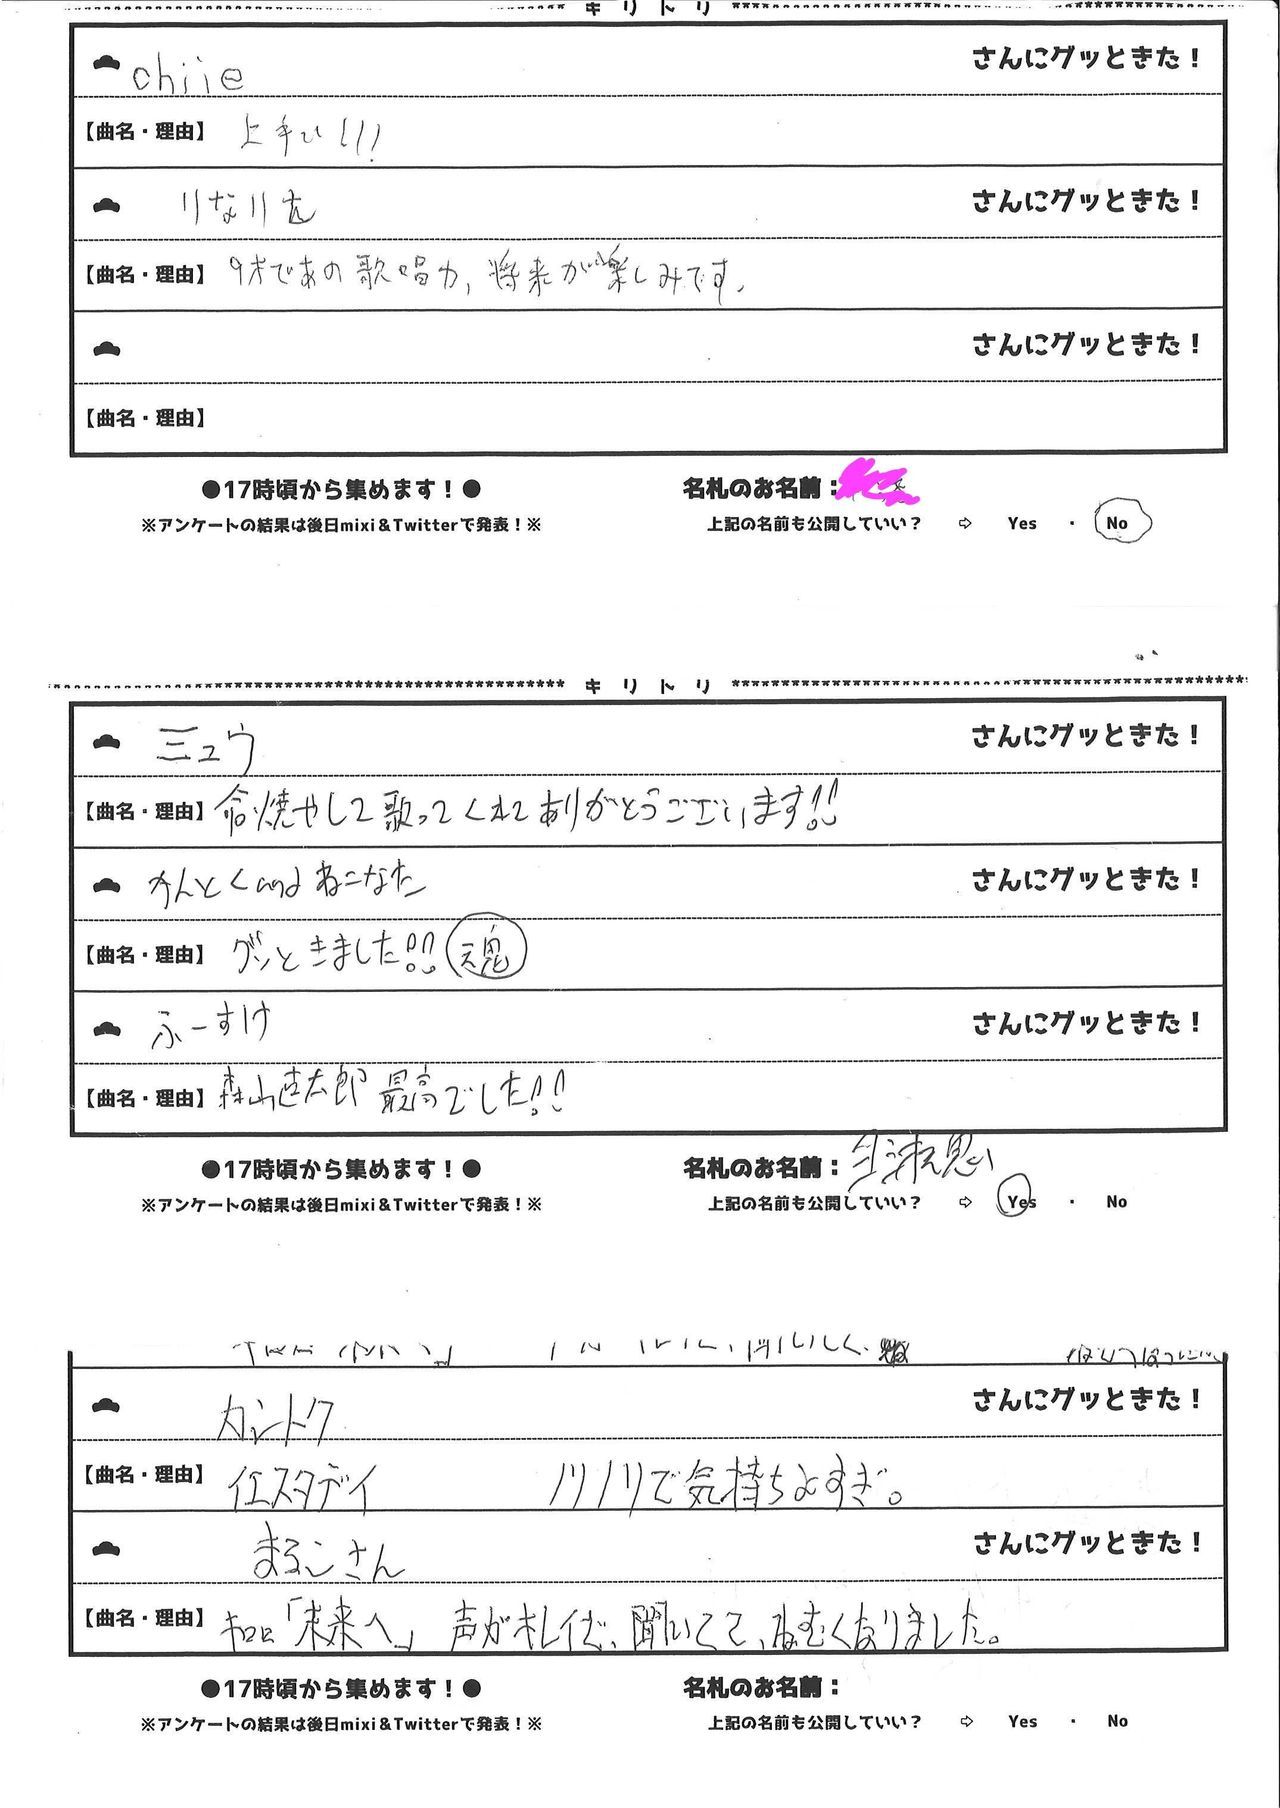 キリトリ
chiie さんにグッときた!
【曲名・理由】 上手い!!!
りなりを さんにグッときた!
【曲名・理由】 9才であの歌唱力、将来が楽しみです。
さんにグッときた!
【曲名・理由】
●17時頃から集めます!● 名札のお名前:
※アンケートの結果は後日mixi&Twitterで発表!※ 上記の名前も公開していい? ⇨ Yes ・ No
キリトリ
ミュウ さんにグッときた!
【曲名・理由】 命燃やして歌ってくれてありがとうございます!!
かんとくandねこなた さんにグッときた!
【曲名・理由】 グッときました!! 魂
ふーすけ さんにグッときた!
【曲名・理由】 森山直太郎 最高でした!!
●17時頃から集めます!● 名札のお名前:
※アンケートの結果は後日mixi&Twitterで発表!※ 上記の名前も公開していい? ⇨ Yes ・ No
カントク さんにグッときた!
【曲名・理由】 イエスタデイ ノリノリで気持ちよすぎ。
まるこさん さんにグッときた!
【曲名・理由】 キロロ「未来へ」 声がキレイで、聞いてて、ねむくなりました。
●17時頃から集めます!● 名札のお名前:
※アンケートの結果は後日mixi&Twitterで発表!※ 上記の名前も公開していい? ⇨ Yes ・ No